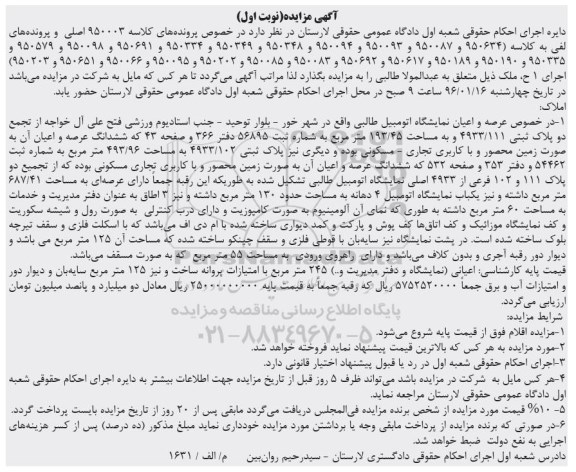 آگهی مزایده(نوبت اول)
دایره اجرای احکام حقوقی شعبه اول دادگاه عمومی حقوقی لارستان در نظر دارد در خصوص پرونده‌های کلاسه ۹۵۰۰۰۳ اصلی و پرونده‌های
لفی به کلاسه (۹۵۰۶۳۴ و ۹۵۰۰۸۷ و ۹۵۰۰۹۳ و ۹۵۰۰۹۴ و ۹۵۰۳۴۸ و ۹۵۰۳۴۹ و ۹۵۰۳۳۴ و ۹۵۰۶۹۱ و ۹۵۰۰۹۸ و ۹۵۰۵۷۹ و
۹۵۰۳۳۵ و ۹۵۰۱۹۰ و ۹۵۰۱۸۹ و ۹۵۰۶۱۷ و ۹۵۰۶۹۲ و ۹۵۰۰۸۳ و ۹۵۰۰۸۵ و ۹۵۰۲۰۲ و ۹۵۰۰۹۵ و ۹۵۰۰۶۶ و ۹۵۰۶۵۱ و ۹۵۰۲۰۳)
اجرای ۱ ح، ملک ذیل متعلق به عبدالمولا طالبی را به مزایده بگذارد لذا مراتب آگهی می‌گردد تا هر کس که مایل به شرکت در مزایده می‌باشد
در تاریخ چهارشنبه ۹۶/۰۱/۱۶ ساعت ۹ صبح در محل اجرای احکام حقوقی شعبه اول دادگاه عمومی حقوقی لارستان حضور یابد.
املاک:
۱-در خصوص عرصه و اعیان نمایشگاه اتومبیل طالبی واقع در شهر خور - بلوار توحید - جنب استادیوم ورزشی فتح علی آل خواجه از تجمع
دو پلاک ثبتی ۴۹۳۳/۱۱۱ و به مساحت ۱۹۳/۴۵ متر مربع به شماره ثبت ۵۶۸۹۵ دفتر ۳۶۶ و صفحه ۴۳ که ششدانگ عرصه و اعیان آن به
صورت زمین محصور و با کاربری تجاری - مسکونی بوده و دیگری نیز پلاک ثبتی ۴۹۳۳/۱۰۲ به مساحت ۴۹۳/۹۶ متر مربع به شماره ثبت
۵۴۴۶۲ و دفتر ۳۵۳ و صفحه ۵۳۲ که ششدانگ عرصه و اعیان آن به صورت زمین محصور و با کاربری تجاری مسکونی بوده که از تجمیع دو
پلاک ۱۱۱ و ۱۰۲ فرعی از ۴۹۳۳ اصلی نمایشگاه اتومبیل طالبی تشکیل شده به طوریکه این رقبه جمعاً دارای عرصه‌ای به مساحت ۶۸۷/۴۱
متر مربع داشته و نیز یکباب نمایشگاه اتومبیل ۴ دهانه به مساحت حدود ۱۳۰ متر مربع داشته و نیز ۳ اطاق به عنوان دفتر مدیریت و خدمات
به مساحت ۶۰ متر مربع داشته به طوری که نمای آن آلومینیوم به صورت کامپوزیت و دارای درب کنترلی به صورت رول و شیشه سکوریت
و کف نمایشگاه موزائیک و کف اتاق‌ها کف پوش و پارکت و کمد دیواری ساخته شده با ام دی اف می‌باشد که با اسکلت فلزی و سقف تیرچه
بلوک ساخته شده است. در پشت نمایشگاه نیز سایه‌بان با قوطی فلزی و سقف چینکو ساخته شده که مساحت آن ۱۲۵ متر مربع می باشد و
دیوار دور رقبه آجری و بدون کلاف می‌باشد و دارای راهروی ورودی به مساحت ۵۵ متر مربع که به صورت مسقف می‌باشد.
قیمت پایه کارشناسی: اعیانی (نمایشگاه و دفتر مدیریت و..) ۲۴۵ متر مربع با امتیازات پروانه ساخت و نیز ۱۲۵ متر مربع سایه‌بان و دیوار دور
و امتیازات آب و برق جمعاً ۵۷۵۲۵۲۰۰۰۰ ریال که رقبه جمعاً به قیمت پایه ۲۵۰۰۰۰۰۰۰۰۰ ریال معادل دو میلیارد و پانصد میلیون تومان
ارزیابی می‌گردد.
شرایط مزایده:
۱-مزایده اقلام فوق از قیمت پایه شروع می‌شود.
۲-مورد مزایده به هر کس که بالاترین قیمت پیشنهاد نماید فروخته خواهد شد.
۳-اجرای احکام حقوقی شعبه اول در رد یا قبول پیشنهاد اختیار قانونی دارد.
۴-هر کس مایل به شرکت در مزایده باشد می‌تواند ظرف ۵ روز قبل از تاریخ مزایده جهت اطلاعات بیشتر به دایره اجرای احکام حقوقی شعبه
اول دادگاه عمومی حقوقی لارستان مراجعه نماید.
۵- ۱۰% قیمت مورد مزایده از شخص برنده مزایده فی‌المجلس دریافت می‌گردد مابقی پس از ۲۰ روز از تاریخ مزایده بایست پرداخت گردد.
۶-در صورتی که برنده مزایده از پرداخت مابقی وجه یا برداشتن مورد مزایده خودداری نماید مبلغ مذکور (ده درصد) پس از کسر هزینه‌های
اجرایی به نفع دولت ضبط خواهد شد.
دادرس شعبه اول اجرای احکام حقوقی دادگستری لارستان - سیدرحیم روان‌بین م/ الف / ۱۶۳۱
پایگاه اطلاع رسانی مناقصه و مزایده
۰۲۱-۸۸۳۴۹۶۷۰-۵